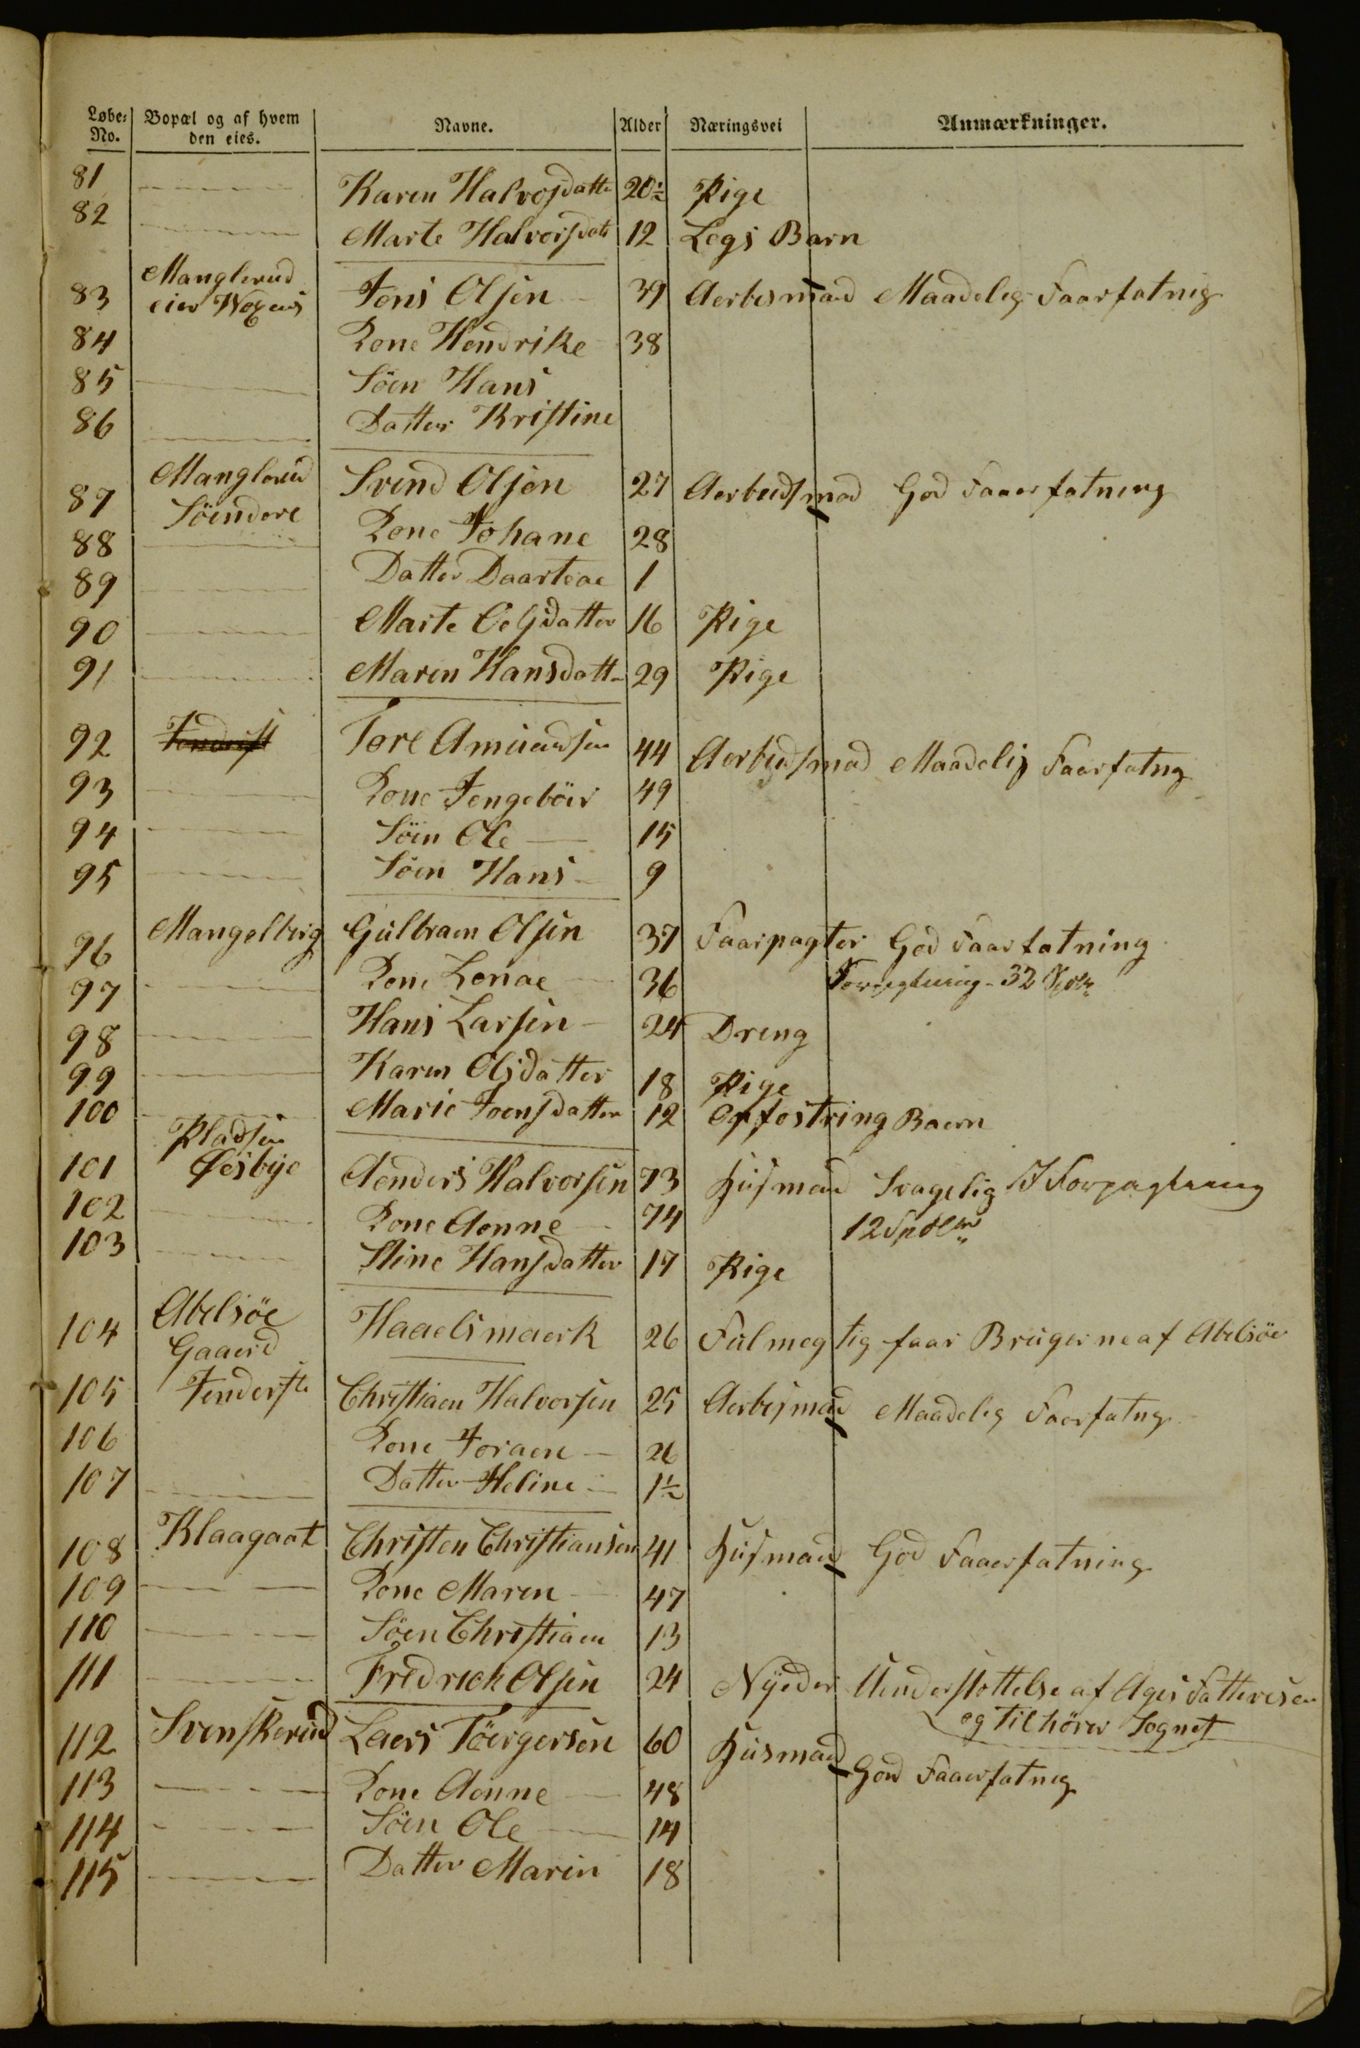 Løbe-No. Bopæl og af hvem den eies. Navne. Alder Næringsvei Anmærkninger.
81 Karen Halvosdatte 20½ Pige
82 Marte Halvorsdatt 12 Legs Barn
83 Manglerud eier Hogens Jens Olsen 39 Aerbesmand Maadelig Faarfatnig
84 Kone Hendrike 38
85 Söen Hans
86 Datter Kristine
87 Manglerud Söendere Svend Olsen 27 Aerbeidsmad God Faaerfatning
88 Kone Johane 28
89 Datter Daarteae 1
90 Marte Oelsdatter 16 Pige
91 Maren Hansdatte 29 Pige
92 Tore Amundsen 44 Aerbeidsmad Maadelig Faarfatng
93 Kone Jengebôer 49
94 Söen Ole 15
95 Söen Hans 9
96 Mangelberg Gulbraen Olsen 37 Faarpagter God Faarfatning
97 Kone Lenae 36 Forpagtning - 32 Spdlr
98 Hans Larsen 24 Dreng
99 Karen Olsdatter 18 Pige
100 Marie Joensdatter 12 Opfostring Baern
101 Pladsen Øesbye Aenders Halvorsen 73 Husmand Svagelig I Forpagtning
102 Kone Aenne 74 12 Spdlr
103 Stine Hansdatter 17 Pige
104 Abelsöe Gaaerd Haaelsmaerk 26 Fulmegtig faar Brugerne af Abelsöe
105 Jenderste Christiaen Halvorsen 25 Aerbesmad Maadelig Faerfatng
106 Kone Joraen 26
107 Datter Heline 1½
108 Klaagaat Christen Christiansen 41 Husmand God Faaerfatning
109 Kone Maren 47
110 Söen Christiaen 13
111 Fredrich Olsen 24 Nyeder Uenderstottelse af Ages Fattevesen
og Tilhörer Sognet
112 Svenskerud Laers Töergersen 60 Husmand God Faaerfatneg
113 Kone Aenne 48
114 Söen Ole 14
115 Datter Maren 18